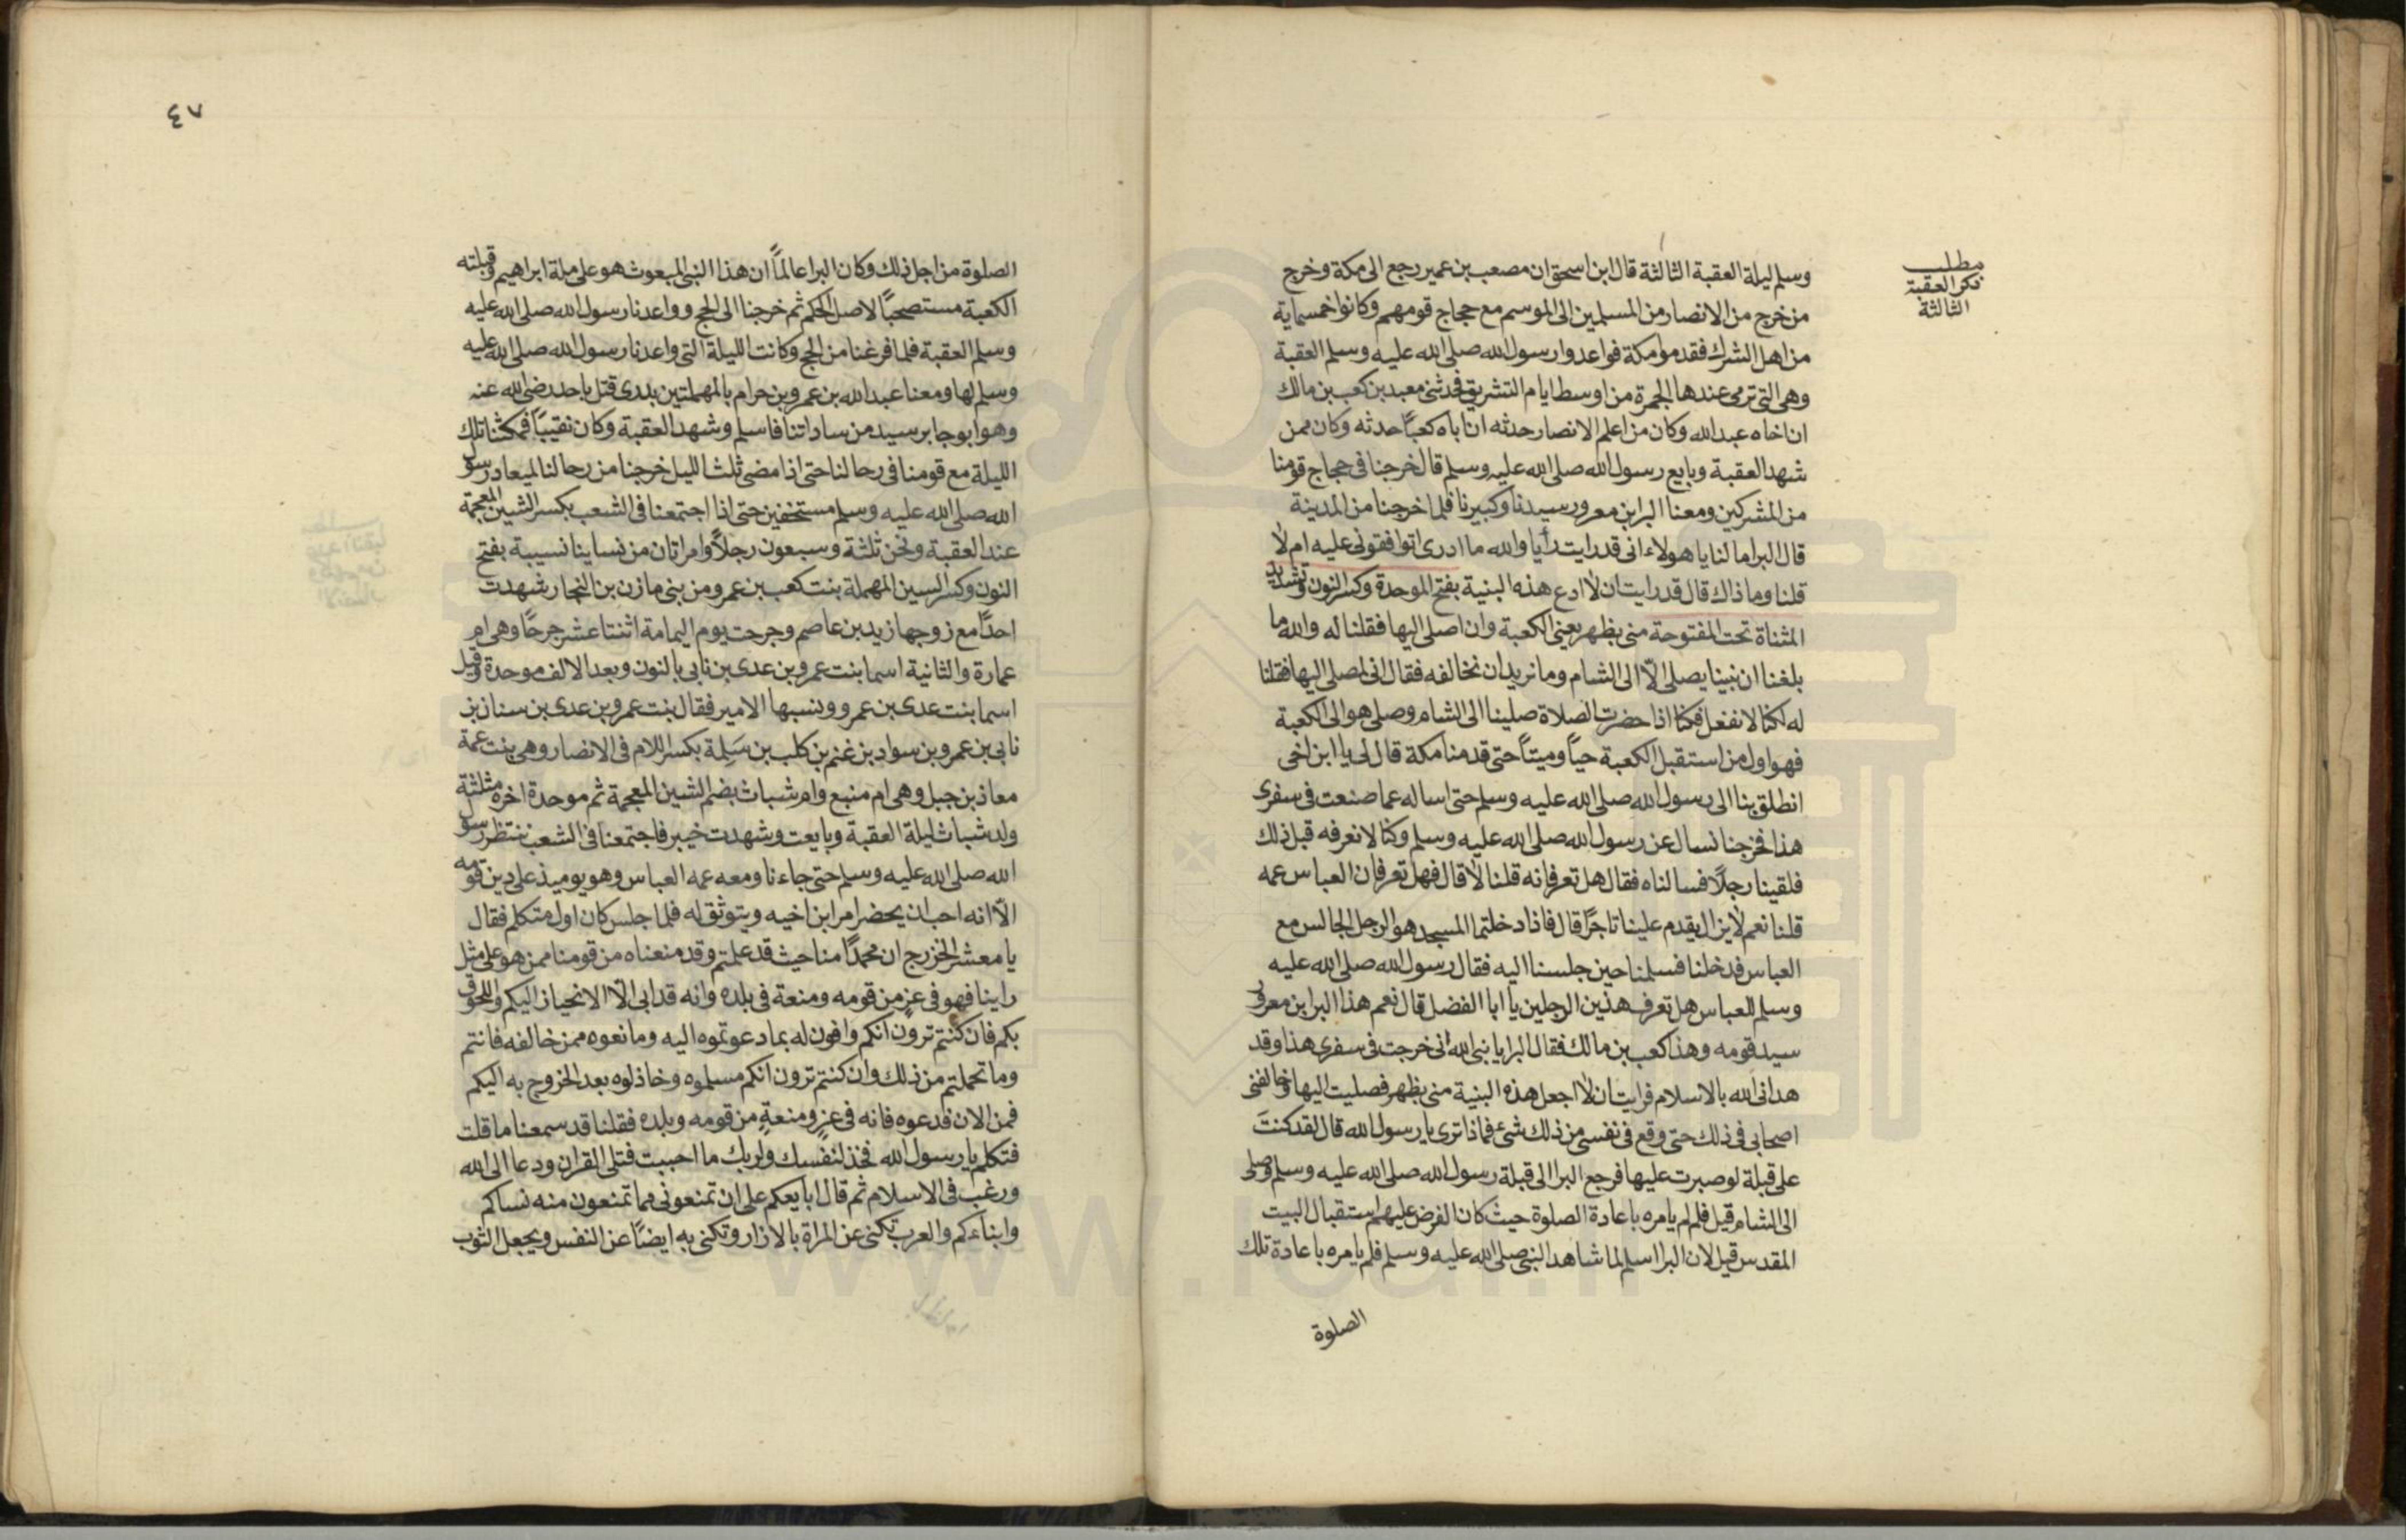 مطلب
ذكر العقبة
الثالثة
وسلم ليلة العقبة الثالثة قال ابن اسحق ان مصعب بن عمير رجع الى مكة وخرج
من خرج من الانصار من المسلمين الى الموسم مع حجاج قومهم وكانوا خمسماية
من اهل الشرك فقدموا مكة فواعدوا رسول الله صلى الله عليه وسلم العقبة
وهي التي ترمى عندها الجمرة من اوسط ايام التشريق فحدثني معبد بن كعب بن مالك
ان اخاه عبد الله وكان من اعلم الانصار حدثه ان اباه كعباً حدثه وكان ممن
شهد العقبة وبايع رسول الله صلى الله عليه وسلم قال خرجنا في حجاج قومنا
من المشركين ومعنا البرا بن معرور سيدنا وكبيرنا فلما خرجنا من المدينة
قال البرا ما لنا يا هولاء انى قد رايت رأيا والله ما ادرى اتوافقونى عليه ام لا
قلنا وما ذاك قال قد رايت ان لا ادع هذه البنية بفتح الموحدة وكسر النون وتشديد
المثناة تحت المفتوحة منى بظهر يعنى الكعبة وان اصلى اليها فقلنا له والله ما
بلغنا ان نبينا يصلى الّا الى الشام وما نريد ان نخالفه فقال انى لمصلى اليها فقلنا
له لكنا لا نفعل فكنا اذا حضرت الصلاة صلينا الى الشام وصلى هو الى الكعبة
فهو اول من استقبل الكعبة حياً وميتاً حتى قدمنا مكة قال لى يا ابن اخى
انطلق بنا الى رسول الله صلى الله عليه وسلم حتى اساله عما صنعت فى سفرى
هذا فخرجنا نسال عن رسول الله صلى الله عليه وسلم وكنا لا نعرفه قبل ذلك
فلقينا رجلاً فسالناه فقال هل تعرفانه قلنا لا قال فهل تعرفان العباس عمه
قلنا نعم لا يزال يقدم علينا تاجرًا قال فاذا دخلتما المسجد هو الرجل الجالس مع
العباس فدخلنا فسلمنا حين جلسنا اليه فقال رسول الله صلى الله عليه
وسلم للعباس هل تعرف هذين الرجلين يا ابا الفضل قال نعم هذا البرا بن معرور
سيد قومه وهذا كعب بن مالك فقال البرا يا نبى الله انى خرجت فى سفرى هذا وقد
هدانى الله بالاسلام فرايت ان لا اجعل هذه البنية منى بظهر فصليت اليها وخالفنى
اصحابى فى ذلك حتى وقع فى نفسى من ذلك شىء فماذا ترى يا رسول الله قال لقد كنتَ
على قبلة لو صبرت عليها فرجع البرا الى قبلة رسول الله صلى الله عليه وسلم وصلى
الى الشام قيل فلم لم يامره باعادة الصلوة حيث كان الفرض عليهم استقبال البيت
المقدس قيل لان البرا اسلم لما شاهد النبى صلى الله عليه وسلم فلم يامره باعادة تلك
الصلوة
٤٧
الصلوة من اجل ذلك وكان البرا عالماً ان هذا النبى المبعوث هو على ملة ابراهيم وقبلته
الكعبة مستصحباً لاصل الحكم ثم خرجنا الى الحج وواعدنا رسول الله صلى الله عليه
وسلم العقبة فلما فرغنا من الحج وكانت الليلة التى واعدنا رسول الله صلى الله عليه
وسلم لها ومعنا عبد الله بن عمرو بن حرام بالمهملتين بدرى قتل باحد رضى الله عنه
وهو ابو جابر سيد من ساداتنا فاسلم وشهد العقبة وكان نقيباً فمكثنا تلك
الليلة مع قومنا فى رحالنا حتى اذا مضى ثلث الليل خرجنا من رحالنا لميعاد رسول
الله صلى الله عليه وسلم مستخفين حتى اذا اجتمعنا فى الشعب بكسر الشين المعجمة
عند العقبة ونحن ثلثة وسبعون رجلاً وامراتان من نساينا نسيبة بفتح
النون وكسر السين المهملة بنت كعب بن عمرو من بنى مازن بن النجار شهدت
احدًا مع زوجها زيد بن عاصم وجرحت يوم اليمامة اثنتا عشر جرحًا وهى ام
عمارة والثانية اسما بنت عمرو بن عدى بن نابى بالنون وبعد الالف موحدة وقيل
اسما بنت عدى بن عمرو ونسبها الامير فقال بنت عمرو بن عدى بن سنان بن
نابى بن عمرو بن سواد بن غنم بن كلب بن سَلِمة بكسر اللام فى الانصار وهى بنت عمة
معاذ بن جبل وهى ام منيع وام شباث بضم الشين المعجمة ثم موحدة اخره مثلثة
ولد شباث ليلة العقبة وبايعت وشهدت خيبر فاجتمعنا فى الشعب ننتظر رسول
الله صلى الله عليه وسلم حتى جاءنا ومعه عمه العباس وهو يوميذ على دين قومه
الّا انه احب ان يحضر امر ابن اخيه ويتوثق له فلما جلس كان اول متكلم فقال
يا معشر الخزرج ان محمدًا منا حيث قد علمتم وقد منعناه من قومنا ممن هو على مثل
راينا فهو فى عز من قومه ومنعة فى بلده وانه قد ابى الّا الانحياز اليكم واللحوق
بكم فان كنتم ترون انكم وافون له بما دعوتموه اليه ومانعوه ممن خالفه فانتم
وما تحملتم من ذلك وان كنتم ترون انكم مسلموه وخاذلوه بعد الخروج به اليكم
فمن الان فدعوه فانه فى عزٍ ومنعةٍ من قومه وبلده فقلنا قد سمعنا ما قلت
فتكلم يا رسول الله فخذ لنفسك ولربك ما احببت فتلى القران ودعا الى الله
ورغب فى الاسلام ثم قال ابايعكم على ان تمنعونى مما تمنعون منه نساكم
وابناءكم والعرب تكنى عن المراة بالازار وتكنى به ايضاً عن النفس ويجعل الثوب